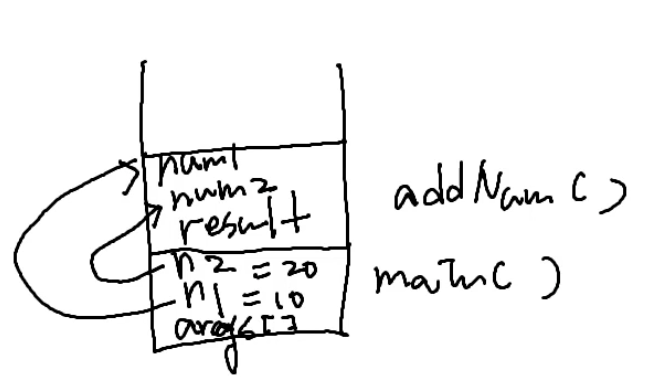 num1
num2
result
addNum()
n2 = 20
n1 = 10
args[]
main()